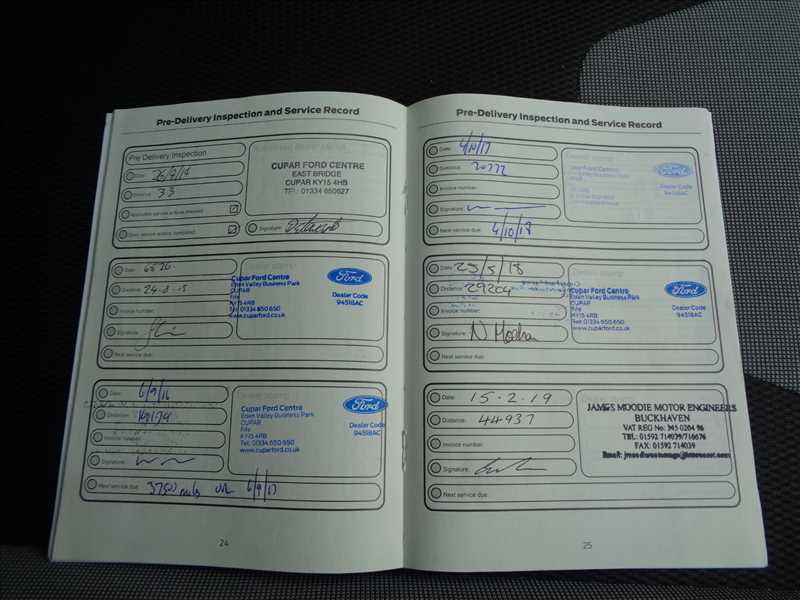 Pre-Delivery Inspection and Service Record
Pre Delivery Inspection
Date:
Distance: 33
Applicable service actions checked
Open service actions completed
CUPAR FORD CENTRE
EAST BRIDGE
CUPAR KY15 4HB
TEL: 01334 650627
Signature:
Date: 6626
Distance: 24-8-15
Invoice number:
Signature:
Next service due:
Cupar Ford Centre
Eden Valley Business Park
CUPAR
Fife
KY15 4RB
Tel: 01334 650 650
www.cuparford.co.uk
Ford
Dealer Code
94518AC
Date: 6/9/16
Distance:
Invoice number:
Signature:
Next service due: 37500 miles OR 6/9/17
Cupar Ford Centre
Eden Valley Business Park
CUPAR
Fife
KY15 4RB
Tel: 01334 650 650
www.cuparford.co.uk
Ford
Dealer Code
94518AC
24
Pre-Delivery Inspection and Service Record
Date: 4/10/17
Distance: 20772
Invoice number:
Signature:
Next service due: 4/10/18
Cupar Ford Centre
Ford
Dealer Code
94518AC
Date: 23/5/18
Distance: 29204
Invoice number:
Signature:
Next service due:
Cupar Ford Centre
Eden Valley Business Park
CUPAR
Fife
KY15 4RB
Tel: 01334 650 650
www.cuparford.co.uk
Ford
Dealer Code
94518AC
Date: 15.2.19
Distance: 44937
Invoice number:
Signature:
Next service due:
JAMES MOODIE MOTOR ENGINEERS
BUCKHAVEN
VAT REG No: 345 0204 96
TEL: 01592 714039/716676
FAX: 01592 714039
25